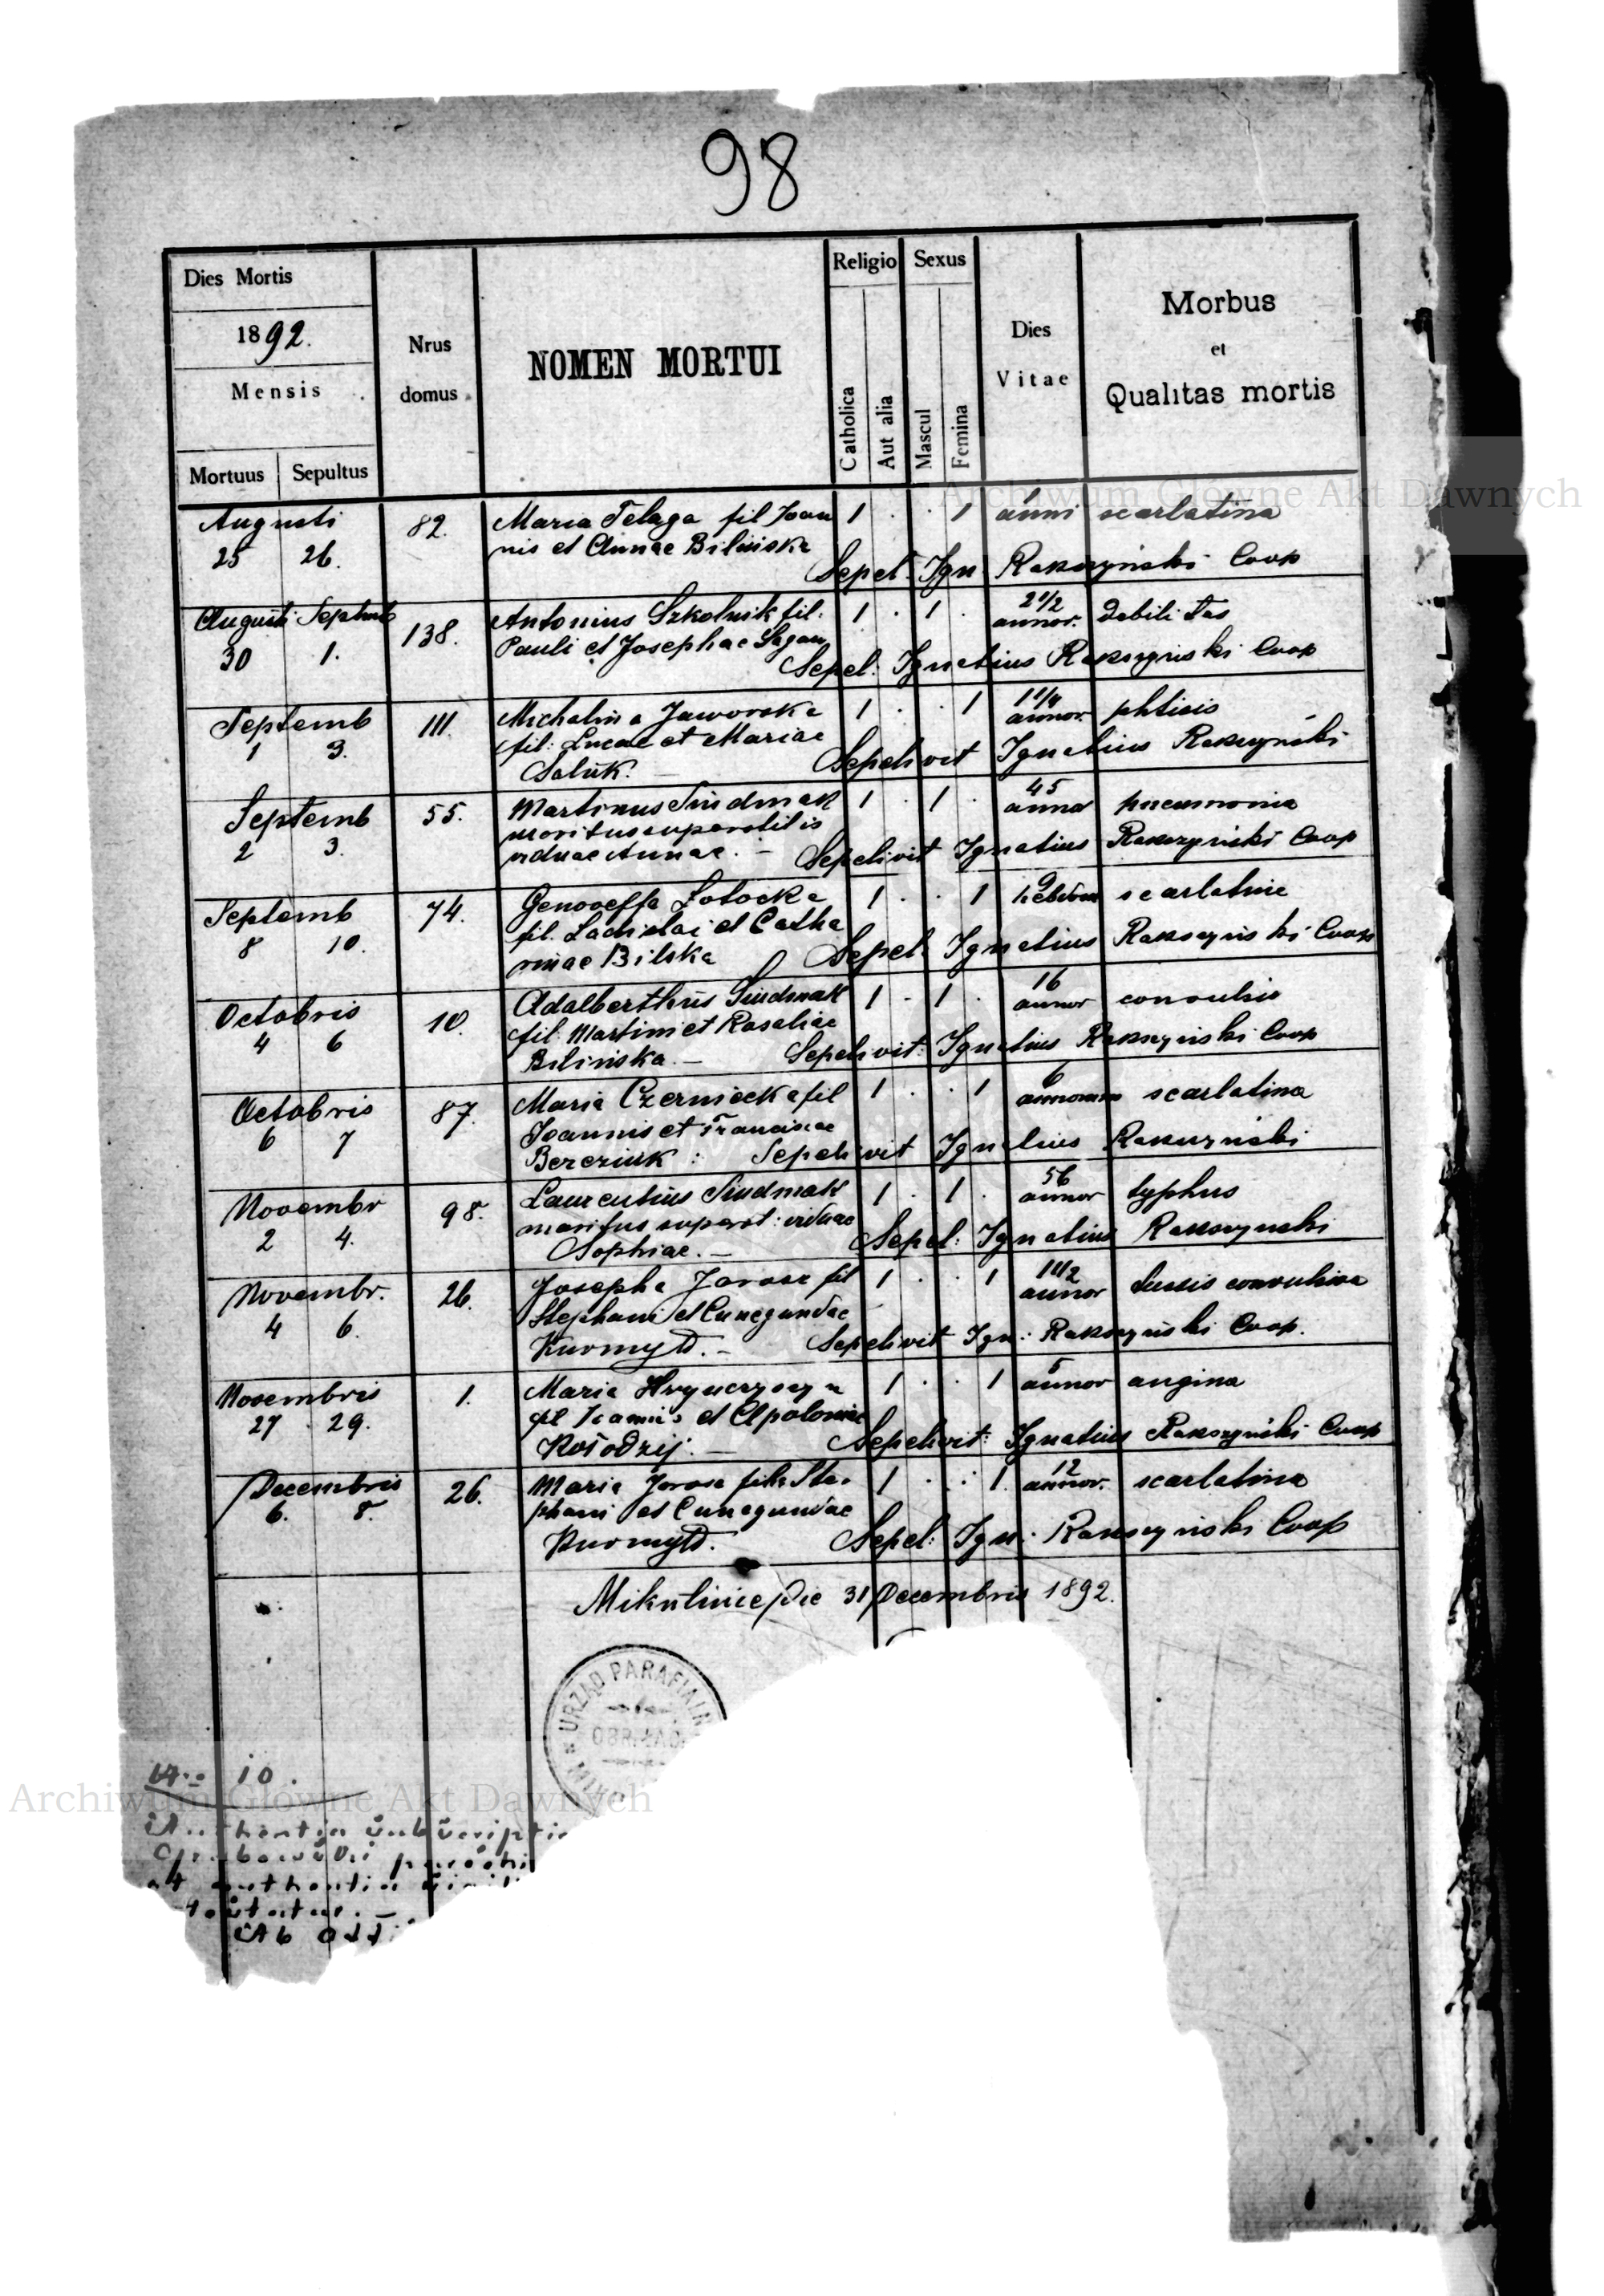 98
Dies Mortis
1892.
Mensis
Mortuus Sepultus
Nrus
domus
NOMEN MORTUI
Religio
Catholica
Aut alia
Sexus
Mascul
Femina
Dies
Vitae
Morbus
et
Qualitas mortis
Archiwum Główne Akt Dawnych
Augusti 82. Maria Telega fil Joan 1 . . 1 anni scarlatina
25 26. nis et Annae Bilinska
Sepel. Ign Rakszyński Coop
Augusti Septemb 138. Antonius Szkolnik fil. 1 . 1 . 2 1/2 annor. debilitas
30 1. Pauli et Josephae Sagan
Sepel. Ignatius Rakszyński Coop
Septemb 111. Michalina Jaworska 1 . . 1 1 1/4 annor. phtisis
1 3. fil: Lucae et Mariae
Saluk. Sepelivit Ignatius Rakszyński
Septemb 55. Martinus Smdmak 1 . 1 . 45 annor pneumonia
2 3. maritus superstitis
viduae Annae. - Sepelivit Ignatius Rakszyński Coop
Septemb 74. Genovefa Lotocka 1 . . 1 9 hebdom scarlatina
8 10. fil. Ladislai et Catha
rinae Bilska Sepel. Ignatius Rakszyński Coop
Octobris 10. Adalberthus 1 . 1 . 16 annor convulsio
4 6 fil. Martini et Rosaliae
Bilinska - Sepelivit Ignatius Rakszyński Coop
Octobris 87. Maria Czerniecka fil 1 . . 1 6 annorum scarlatina
6 7 Joannis et Franciscae
Bereziuk : Sepelivit Ignatius Rakszyński
Novembr 98. Laurentius 1 . 1 . 56 annor typhus
2 4. maritus superst: viduae
Sophiae. - Sepel: Ignatius Rakszynski
Novembr. 26. Josepha Jarosz fil 1 . . 1 1 1/2 annor tussis convulsiva
4 6. Stephani et Cunegundae
Kurmyło. - Sepelivit Ign: Rakszyński Coop.
Novembris 1. Maria Hrynczyszyn 1 . . 1 5 annor angina
27 29. fil Joannis et Apoloniae
Kołodzij. - Sepelivit: Ignatius Rakszyński Coop
Decembris 26. Maria Jarosz filia Ste- 1 . . 1. 12 annor. scarlatina
6. 8. phani et Cunegundae
Kurmyło. Sepel: Ign. Rakszyński Coop
Mikulińce die 31 Decembris 1892.
URZĄD PARAFIALN
OBRZĄD
MIK
10.
Archiwum Główne Akt Dawnych
Ab